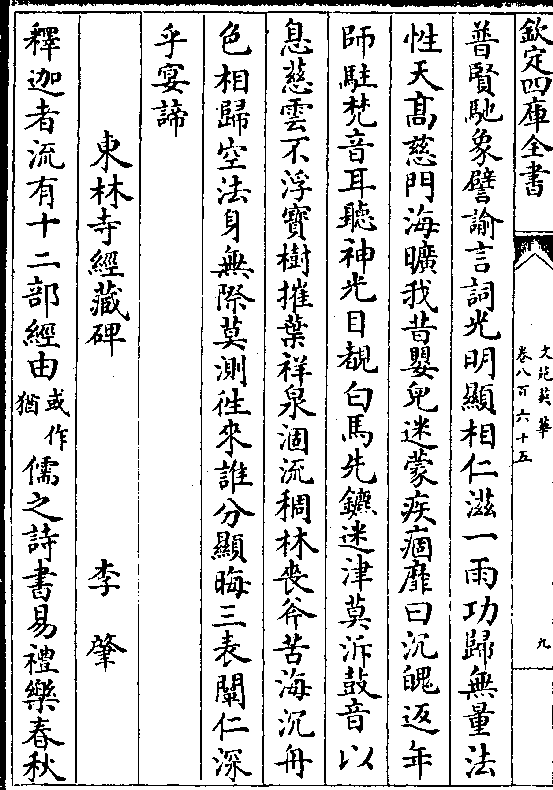 欽定四庫全書
文苑英華
卷八百六十五
九
普賢馳象譬諭言詞光明顯相仁滋一雨功歸無量法
性天髙慈門海曠我昔嬰兒迷蒙疾痼靡曰沉魄返年
師駐梵音耳聽神光目覩白馬先鑣迷津莫泝鼓音以
息慈雲不浮寳樹摧葉祥泉涸流稠林喪斧苦海沉舟
色相歸空法身無際莫測徃來誰分顯晦三表闡仁深
乎宴諦
東林寺經藏碑　李肇
釋迦者流有十二部經由或作猶儒之詩書易禮樂春秋